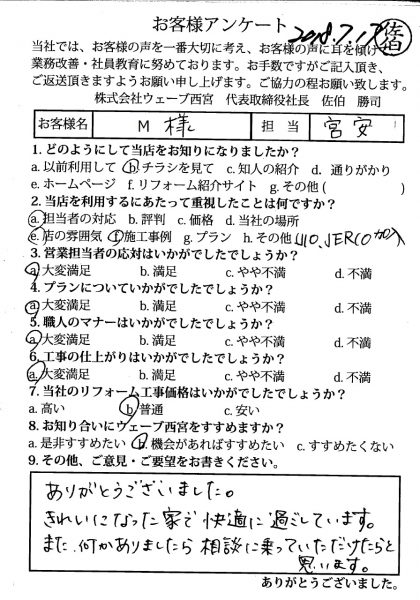 お客様アンケート 2018.7.17 佐伯
当社では、お客様の声を一番大切に考え、お客様の声に耳を傾け
業務改善・社員教育に努めております。お手数ですがご記入頂き、
ご返送頂きますようお願い申し上げます。ご協力の程お願い致します。
株式会社ウェーブ西宮 代表取締役社長 佐伯 勝司
お客様名 M 様 担当 宮安
1. どのようにして当店をお知りになりましたか？
a. 以前利用して b. チラシを見て c. 知人の紹介 d. 通りがかり
e. ホームページ f. リフォーム紹介サイト g. その他 ( )
2. 当店を利用するにあたって重視したことは何ですか？
a. 担当者の対応 b. 評判 c. 価格 d. 当社の場所
e. 店の雰囲気 f. 施工事例 g. プラン h. その他 LIXIL、JERCO加入
3. 営業担当者の応対はいかがでしたでしょうか？
a. 大変満足 b. 満足 c. やや不満 d. 不満
4. プランについていかがでしたでしょうか？
a. 大変満足 b. 満足 c. やや不満 d. 不満
5. 職人のマナーはいかがでしたでしょうか？
a. 大変満足 b. 満足 c. やや不満 d. 不満
6. 工事の仕上がりはいかがでしたでしょうか？
a. 大変満足 b. 満足 c. やや不満 d. 不満
7. 当社のリフォーム工事価格はいかがでしたでしょうか？
a. 高い b. 普通 c. 安い
8. お知り合いにウェーブ西宮をすすめますか？
a. 是非すすめたい b. 機会があればすすめたい c. すすめたくない
9. その他、ご意見・ご要望をお書きください。
ありがとうございました。
きれいになった家で快適に過ごしています。
また、何かありましたら相談に乗っていただけたらと
思います。
ありがとうございました。